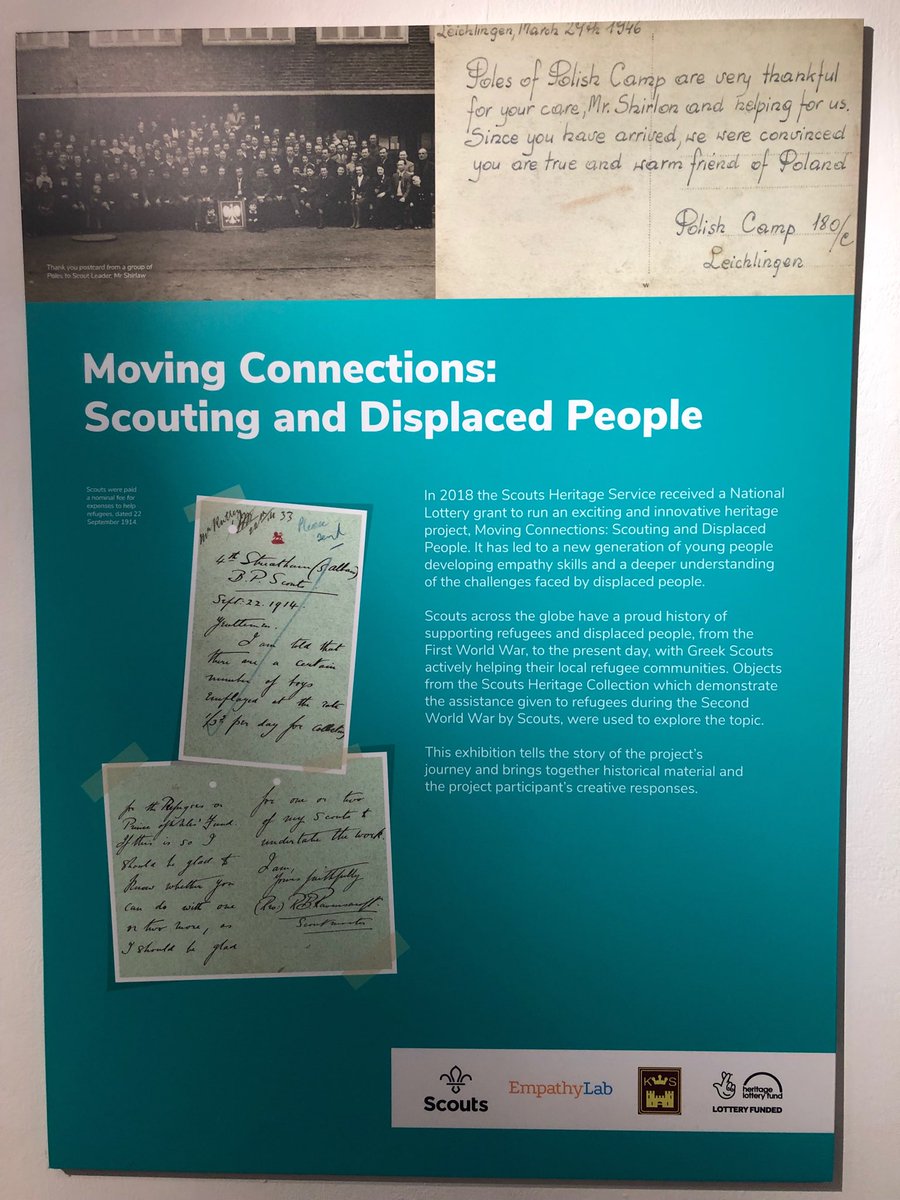 Leichlingen, March 29th 1946
Poles of Polish Camp are very thankful
for your care, Mr. Shirlon and helping for us.
Since you have arrived, we were convinced
you are true and warm friend of Poland
Polish Camp 180/c
Leichlingen
Thank you postcard from a group of
Poles to Scout Leader, Mr Shirlaw
Moving Connections:
Scouting and Displaced People
Scouts were paid
a nominal fee for
expenses to help
refugees, dated 22
September 1914.
33
Please
send
4th Streatham (S. Albans)
B.P. Scouts
Sept. 22. 1914
Gentlemen.
I am told that
there are a certain
number of boys
employed at the rate
per day for collecting
for the Refugees or
Prince of Wales' Fund.
If this is so I
should be glad to
know whether you
can do with one
or two more, as
I should be glad
for one or two
of my Scouts to
undertake the work.
I am,
Yours faithfully
(Rev.)
Scoutmaster
In 2018 the Scouts Heritage Service received a National
Lottery grant to run an exciting and innovative heritage
project, Moving Connections: Scouting and Displaced
People. It has led to a new generation of young people
developing empathy skills and a deeper understanding
of the challenges faced by displaced people.
Scouts across the globe have a proud history of
supporting refugees and displaced people, from the
First World War, to the present day, with Greek Scouts
actively helping their local refugee communities. Objects
from the Scouts Heritage Collection which demonstrate
the assistance given to refugees during the Second
World War by Scouts, were used to explore the topic.
This exhibition tells the story of the project's
journey and brings together historical material and
the project participant's creative responses.
Scouts
EmpathyLab
K S
heritage
lottery fund
LOTTERY FUNDED